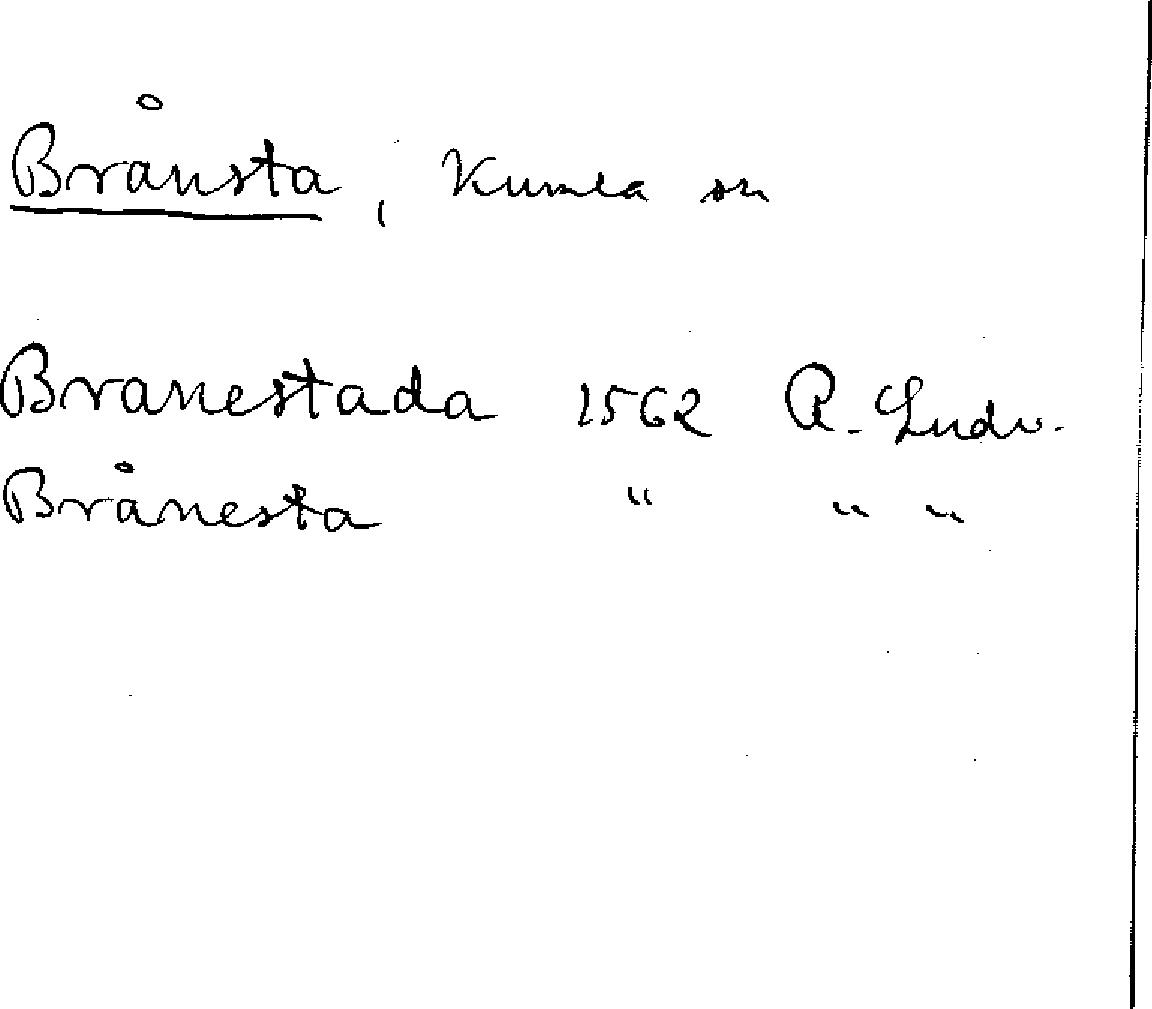 Brånsta, Kumla sn
Branestada 1562 P. Ludv.
Brånesta " " "